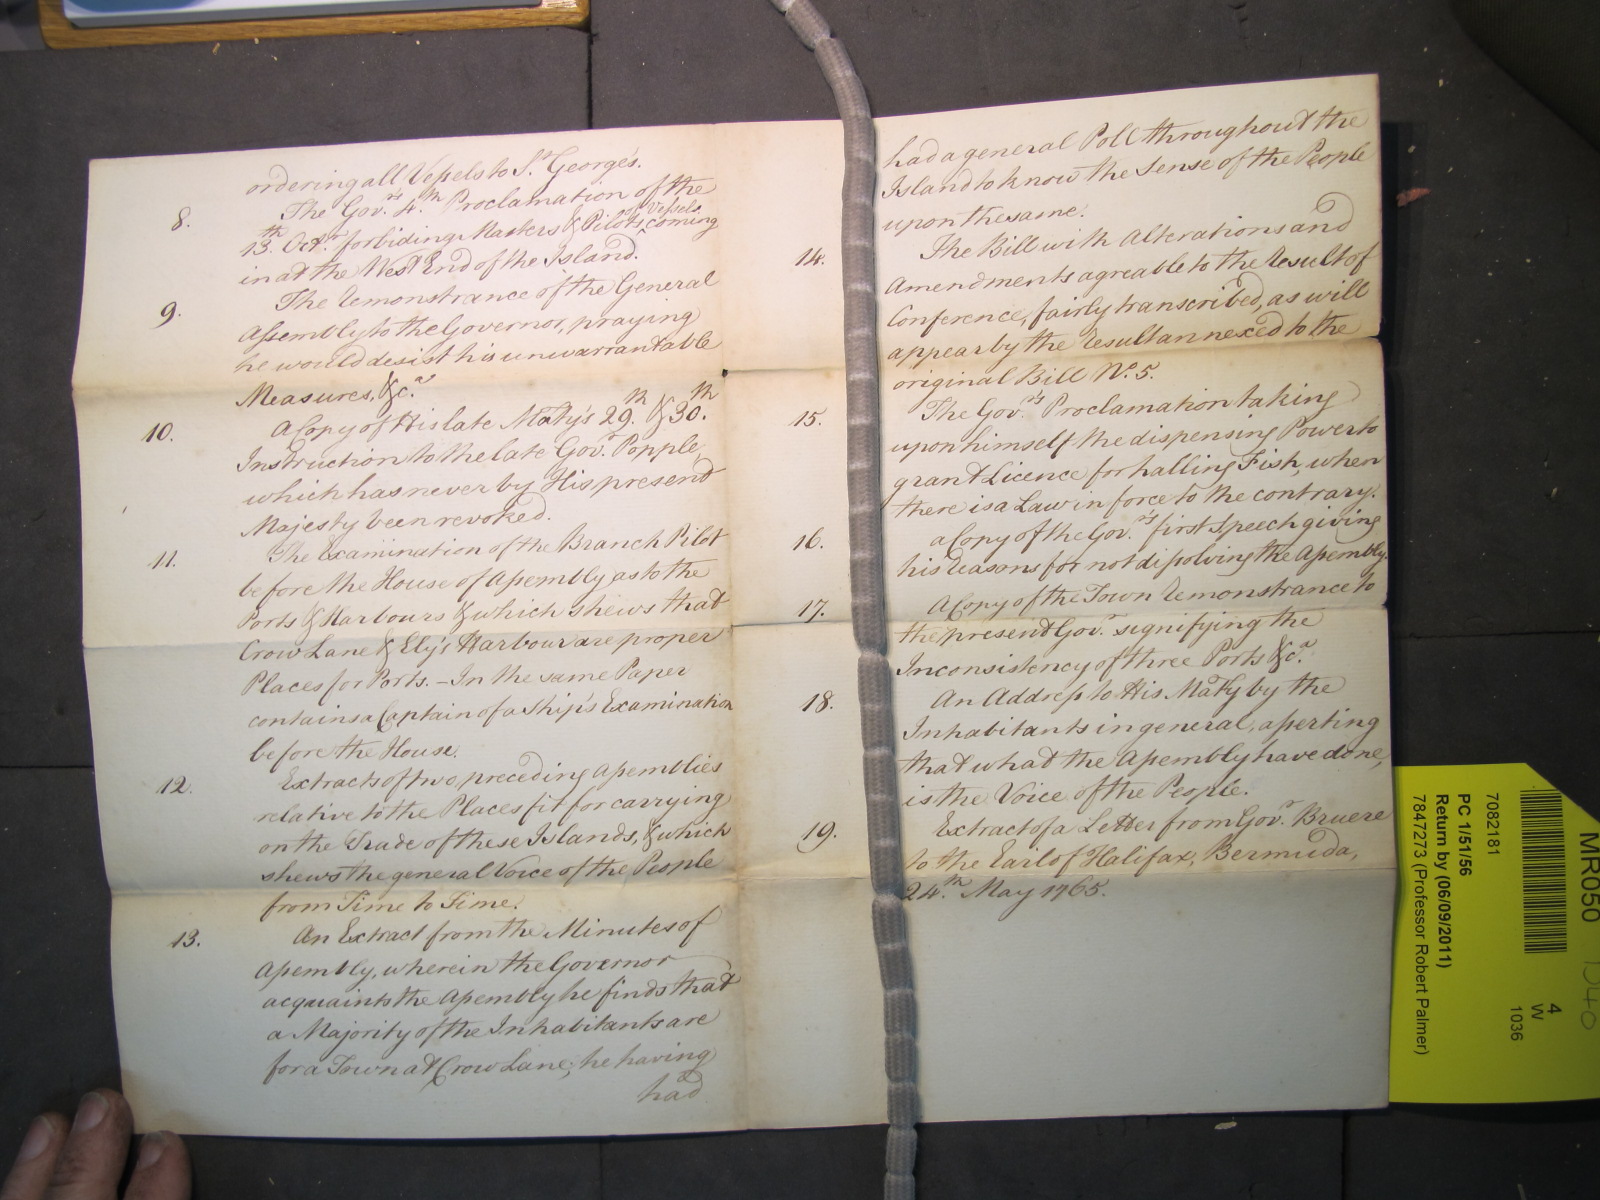 ordering all Vessels to St. George's.
8. The Gov.rs 4.th Proclamation of the
13.th Oct.r forbiding Masters & Pilots of Vessels coming
in at the West End of the Island.
9. The Remonstrance of the General
Assembly to the Governor, praying
he would desist his unwarrantable
Measures, &c.a
10. A Copy of His late Maty's 29.th & 30.th
Instruction to the late Gov.r Popple,
which has never by His present
Majesty been revoked.
11. The Examination of the Branch Pilot
before the House of Assembly as to the
Ports & Harbours & which shews that
Crow Lane & Ely's Harbour are proper
Places for Ports. - In the same Paper
contains a Captain of a Ship's Examination
before the House.
12. Extracts of two preceding Assemblies
relative to the Places fit for carrying
on the Trade of these Islands, & which
shews the general Voice of the People
from Time to Time.
13. An Extract from the Minutes of
Assembly, wherein the Governor
acquaints the Assembly he finds that
a Majority of the Inhabitants are
for a Town at Crow Lane; he having
had
had a general Poll throughout the
Island to know the Sense of the People
upon the same.
14. The Bill with Alterations and
Amendments agreable to the Result of
Conference, fairly transcribed, as will
appear by the Result annexed to the
original Bill No. 5.
15. The Gov.rs Proclamation taking
upon himself the dispensing Power to
grant Licence for halling Fish, when
there is a Law in force to the contrary.
16. A Copy of the Gov.rs first Speech giving
his Reasons for not dissolving the Assembly.
17. A Copy of the Town Remonstrance to
the present Gov.r signifying the
Inconsistency of three Ports &c.a
18. An Address to His Maty by the
Inhabitants in general, asserting
that what the Assembly have done,
is the Voice of the People.
19. Extract of a Letter from Gov.r Bruere
to the Earl of Halifax, Bermuda,
24.th May 1765.
MR050 1040
4
W
1036
7082181
PC 1/51/56
Return by (06/09/2011)
7847273 (Professor Robert Palmer)